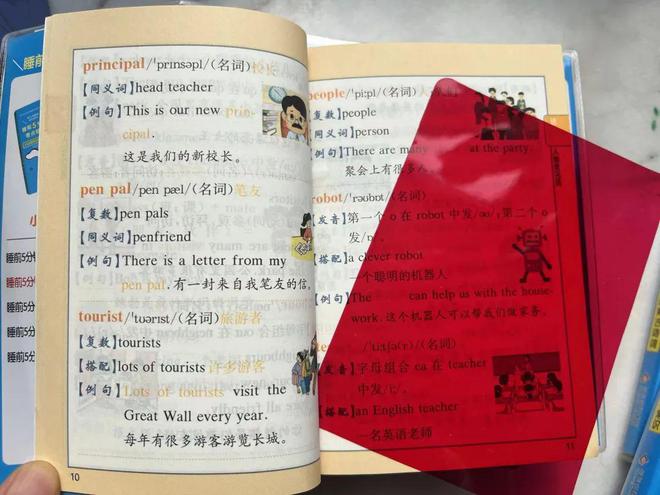 principal/ˈprɪnsəpl/(名词)校长
【同义词】head teacher
【例句】This is our new prin-
cipal.
这是我们的新校长。
pen pal/pen pæl/(名词)笔友
【复数】pen pals
【同义词】penfriend
【例句】There is a letter from my
pen pal. 有一封来自我笔友的信。
tourist/ˈtʊərɪst/(名词)旅游者
【复数】tourists
【搭配】lots of tourists 许多游客
【例句】Lots of tourists visit the
Great Wall every year.
每年有很多游客游览长城。
10
people/ˈpiːpl/(名词)
复数】people
同义词】person
【例句】There are many at the party.
聚会上有很多
robot/ˈrəʊbɒt/(名词)
发音】第一个 o 在 robot 中发/əʊ/; 第二个 o
发/ɒ/。
【搭配】a clever robot
一个聪明的机器人
【例句】The can help us with the house-
work. 这个机器人可以帮我们做家务。
/ˈtiːtʃə(r)/(名词)
发音】字母组合 ea 在 teacher
中发/iː/。
【搭配】an English teacher
一名英语老师
11
睡前
睡前5分
睡前5分
睡前5分
睡前5分